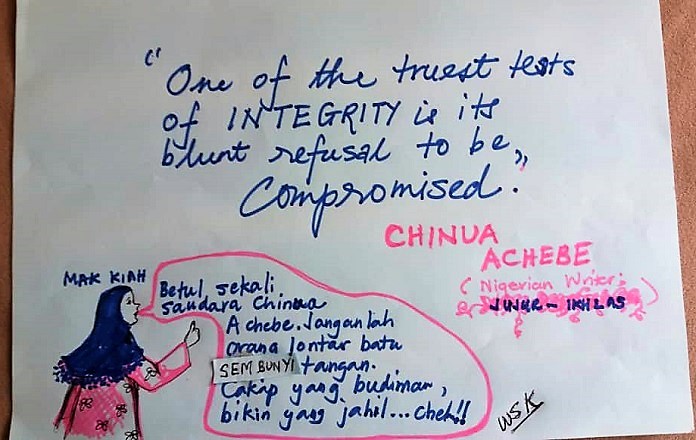 "One of the truest tests
of INTEGRITY is its
blunt refusal to be,,
Compromised."
CHINUA
ACHEBE
(Nigerian Writer:)
JUJUR - IKHLAS
MAK KIAH
Betul sekali
saudara Chinua
Achebe. Janganlah
orang lontar batu
SEMBUNYI tangan.
Cakap yang budiman,
bikin yang jahil... cheh!!
WSK